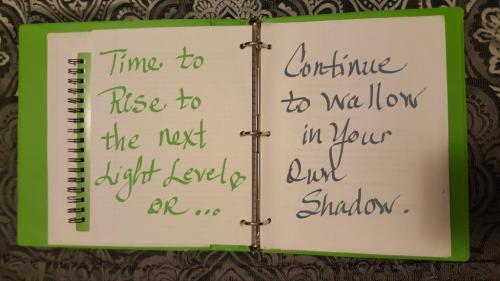 Time to
Rise to
the next
Light Level
OR ...
Continue
to wallow
in Your
Own
Shadow.